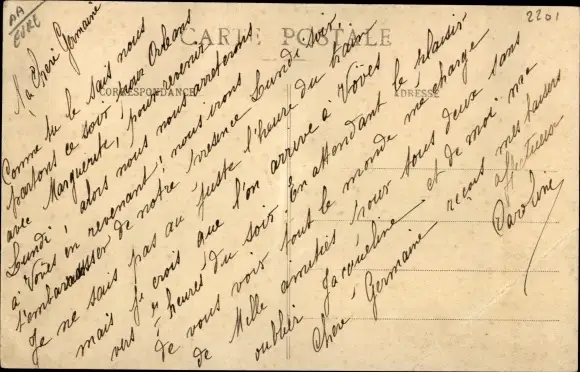 AA
EURE
2201
CARTE POSTALE
CORRESPONDANCE
ADRESSE
Ma Chère Germaine
Comme tu le sais nous
partons ce soir pour Orléans
avec Marguerite, pour revenir
Lundi; alors nous nous arreterons
à Voves en revenant; nous irons
t'embarrasser de notre présence Lundi soir,
Je ne sais pas au juste l'heure du train
mais je crois que l'on arrive à Voves
vers 7 heures du soir. En attendant le plaisir
de vous voir tout le monde me charge
de Mille amitiés pour tous deux sans
oublier Jacqueline et de moi ma
Chère Germaine reçois mes baisers
affectueux
Caroline